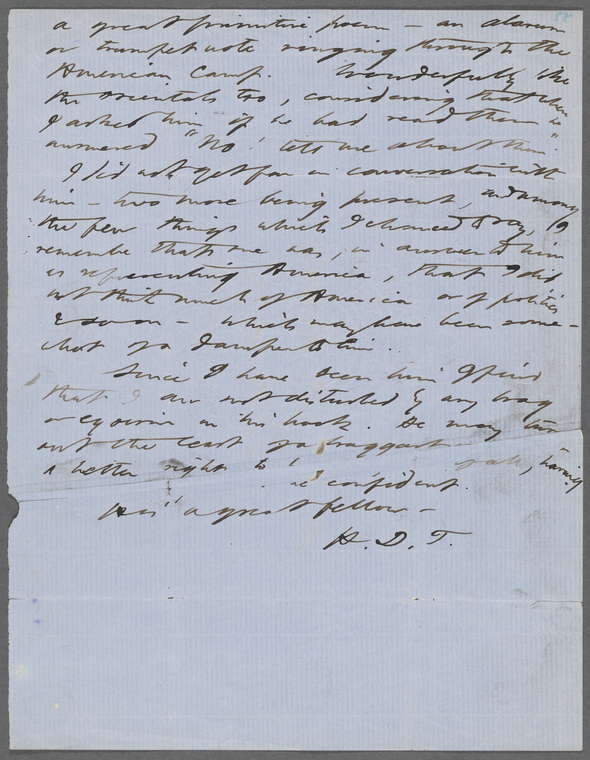 a great primitive poem – an alarum
or trumpet-note ringing through the
American Camp. Wonderfully like
the Orientals, too, considering that when
I asked him if he had read them, he
answered "No: tell me about them."
I did not get far in conversation with
him – two more being present, and among
the few things which I chanced to say, I
remember that one was, in answer to him
as representing America, that I did
not think much of America or of politics
& so on – which may have been some-
what of a damper to him.
Since I have seen him I find
that I am not disturbed by any brag
or egoism in his book. He may turn
out the least of a braggart of all, having
a better right to be confident.
He is a great fellow –
H. D. T.